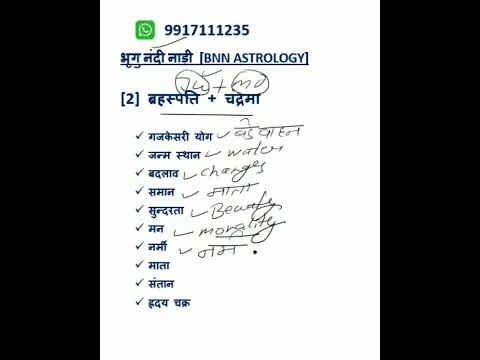 9917111235
भृगु नंदी नाडी [BNN ASTROLOGY]
Ju + mo
[2] ब्रहस्पति + चद्रेमा
✓ गजकेसरी योग ✓ बडे वाहन
✓ जन्म स्थान ✓ water
✓ बदलाव ✓ changes
✓ समान ✓ माता
✓ सुन्दरता ✓ Beauty
✓ मन ✓ morality
✓ नर्मी ✓ नर्म
✓ माता
✓ संतान
✓ ह्रदय चक्र